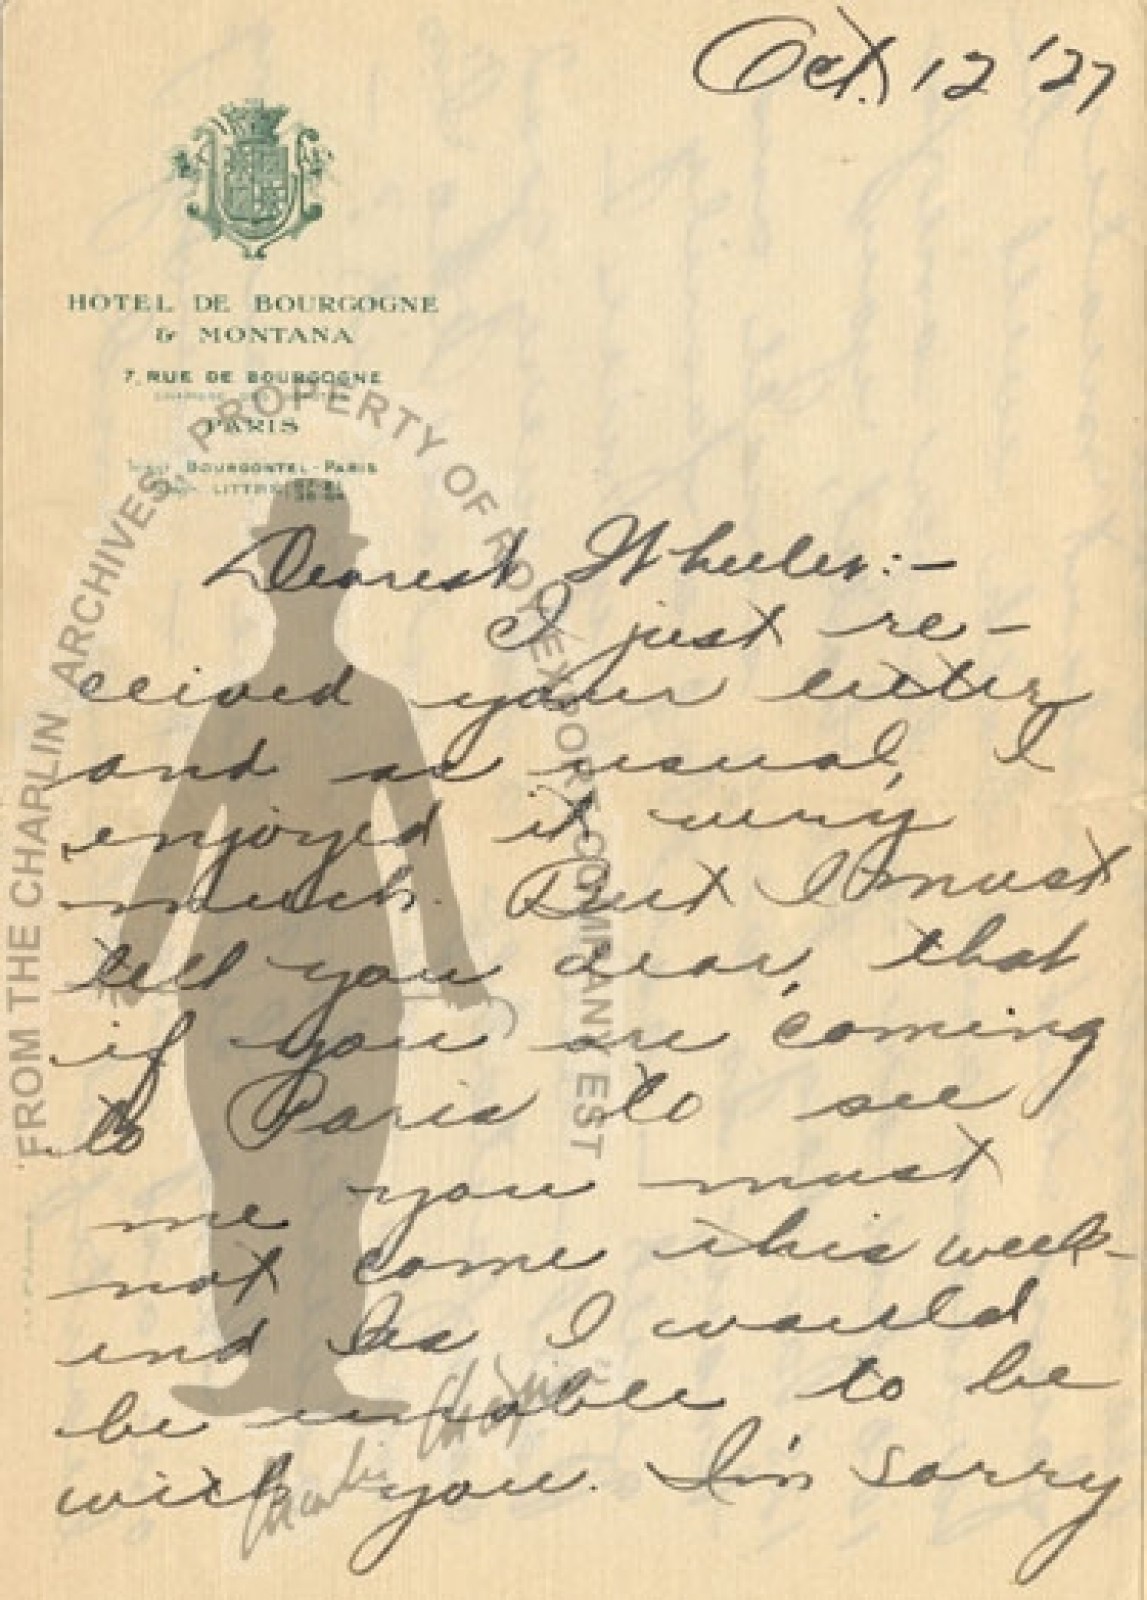 Oct. 12 '27
HOTEL DE BOURGOGNE
& MONTANA
7, RUE DE BOURGOGNE
PARIS
BOURGONTEL-PARIS
LITTRÉ
Dearest Wheeler:-
I just re-
ceived your letter
and as usual, I
enjoyed it very
much. But I must
tell you dear, that
if you are coming
to Paris to see
me you must
not come this week-
end as I would
be unable to be
with you. I'm sorry
FROM THE CHAPLIN ARCHIVES, PROPERTY OF ROY EXPORT COMPANY EST
Charlie Chaplin